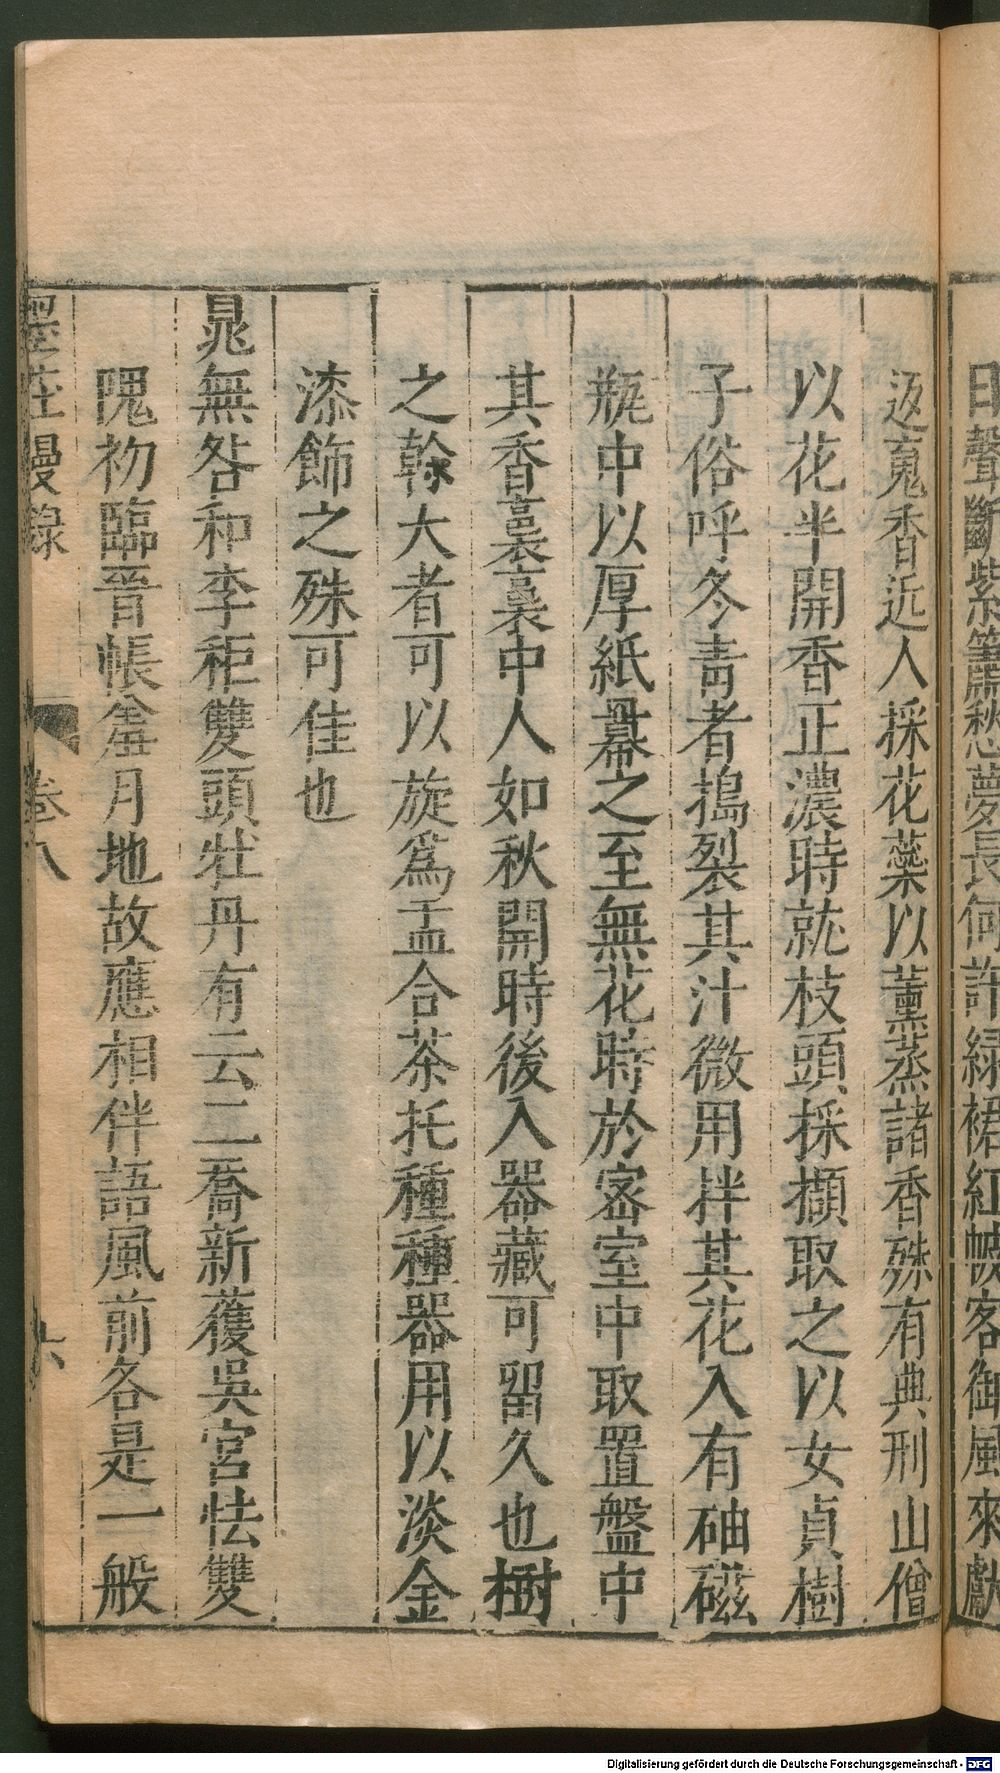 日聲斷紫簫愁夢長何許綠裙紅帔客御風來獻
返䰟香近人採花蘂以薰蒸諸香殊有典刑山僧
以花半開香正濃時就枝頭採擷取之以女貞樹
子俗呼冬青者搗裂其汁微用拌其花入有砷磁
瓶中以厚紙羃之至無花時於密室中取置盤中
其香裛裛中人如秋開時後入器藏可留久也樹
之榦大者可以旋爲盂合茶托種種器用以淡金
漆飾之殊可佳也
晁無咎和李秬雙頭牡丹有云二喬新獲吳宮怯雙
隗初臨晉帳羞月地故應相伴語風前各是一般
墨莊漫錄 卷八 六
Digitalisierung gefördert durch die Deutsche Forschungsgemeinschaft - DFG